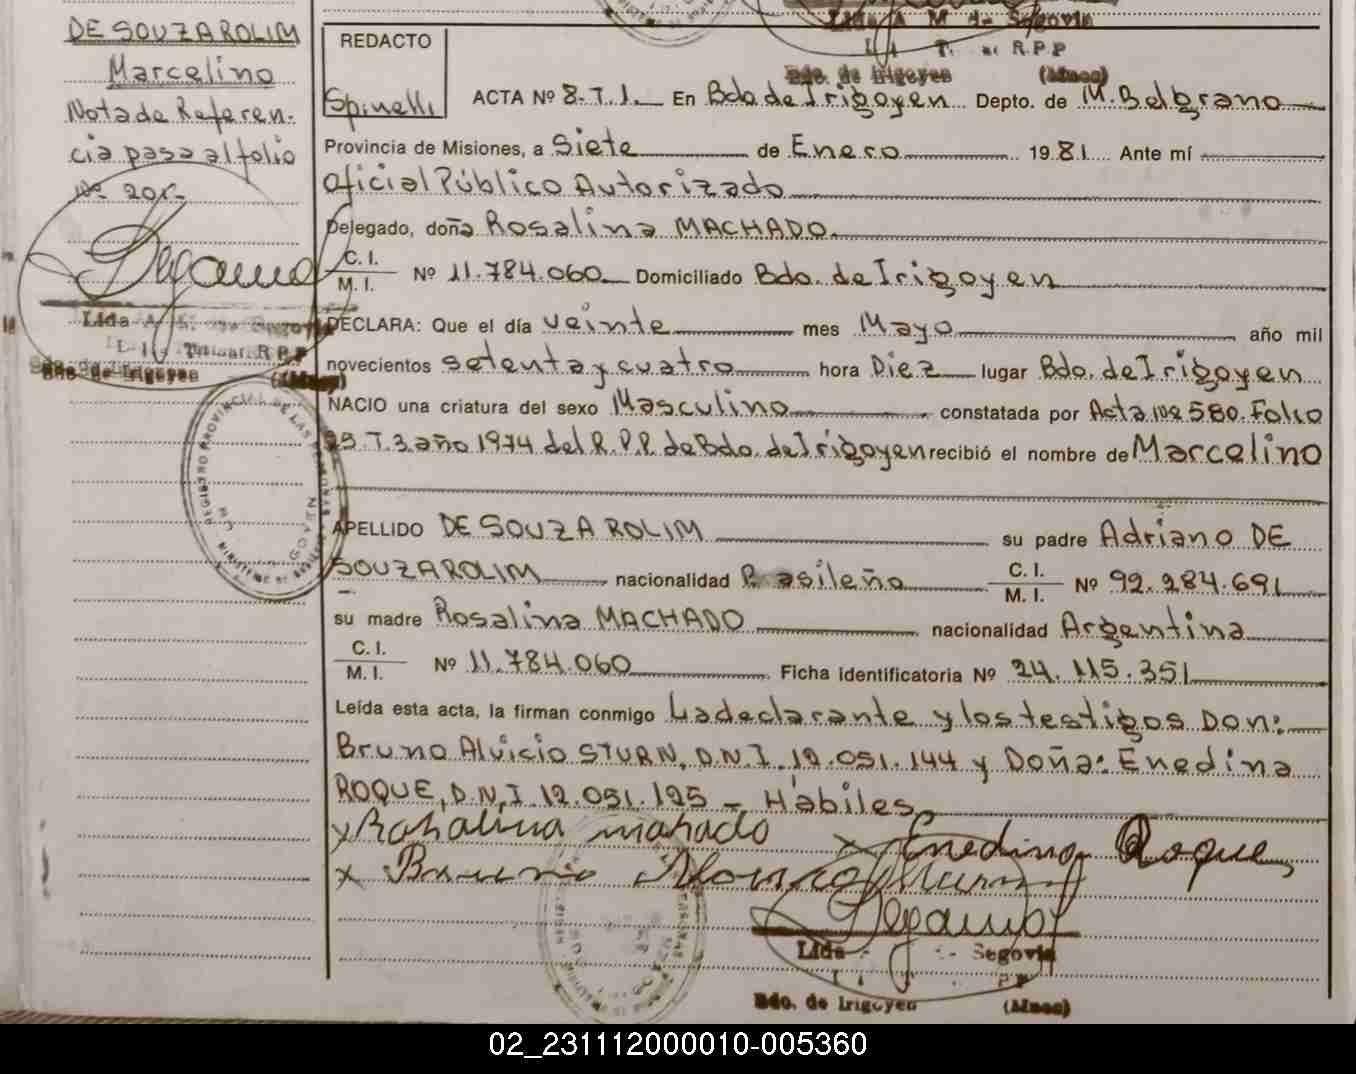 DE SOUZA ROLIM
Marcelino
Nota de Referen-
cia pasa al folio
Nº 205-
Lida A. M. de Segovia
Bdo. de Irigoyen (Mnes)
REGISTRO PROVINCIAL DE LAS PERSONAS
Lida A. M. de Segovia
R.P.P
Bdo. de Irigoyen (Mnes)
REDACTO
Spinelli
ACTA Nº 8-T.1. En Bdo de Irigoyen Depto. de M. Belgrano
Provincia de Misiones, a Siete de Enero 1981 Ante mí
Oficial Público Autorizado
Delegado, doña Rosalina MACHADO.
C. I.
M. I. Nº 11.784.060 Domiciliado Bdo. de Irigoyen
DECLARA: Que el día veinte mes Mayo año mil
novecientos setenta y cuatro hora Diez lugar Bdo. de Irigoyen
NACIO una criatura del sexo Masculino constatada por Acta Nº 580. Folio
95.T.3 año 1974 del R.P.P. de Bdo. de Irigoyen recibió el nombre de Marcelino
APELLIDO DE SOUZA ROLIM su padre Adriano DE
SOUZA ROLIM nacionalidad Brasileña C. I. M. I. Nº 92.284.691
su madre Rosalina MACHADO nacionalidad Argentina
C. I.
M. I. Nº 11.784.060 Ficha Identificatoria Nº 24.115.351
Leída esta acta, la firman conmigo La declarante y los testigos Don:
Bruno Aluicio STURN, D.N.I. 12.051.144 y Doña: Enedina
ROQUE, D.N.I. 12.051.125 - Hábiles
x Rosalina machado x Enedina Roque
x Bruno
Lida Segovia
Bdo. de Irigoyen (Mnes)
02_231112000010-005360